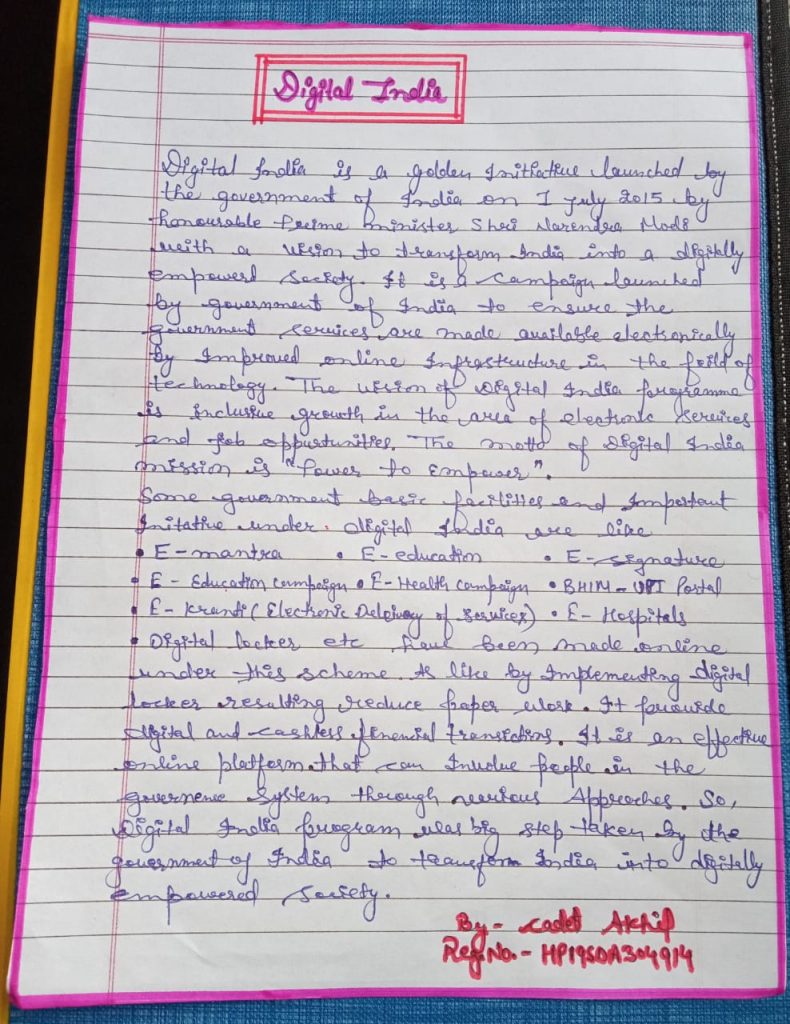 Digital India
Digital India is a golden Initiative launched by
the government of India on 1 July 2015 by
honourable Prime minister Shri Narendra Modi
with a vision to transform India into a digitally
empowerd society. It is a campaign launched
by government of India to ensure the
government services are made available electronically
by Improved online Infrastructure in the feild of
technology. The vision of Digital India programme
is inclusive growth in the area of electronic services
and job oppurtunities. The motto of Digital India
mission is "Power to Empower".
Some government basic facilities and Important
Initative under digital India are like
• E-mantra • E-education • E-signature
• E - Education campaign • E-Health campaign • BHIM-UPI Portal
• E-kranti (Electronic Delivery of Services) • E-Hospitals
• Digital locker etc have been made online
under this scheme. As like by Implementing digital
locker resulting reduce paper work. It provide
digital and cashless finencial transictions. It is an effective
online platform that can Involve people in the
governence System through various Approches. So,
Digital India program was big step taken by the
government of India to transform India into digitally
empowered society.
By- Cadet Akhil
Reg.No.- HP19SDA304914